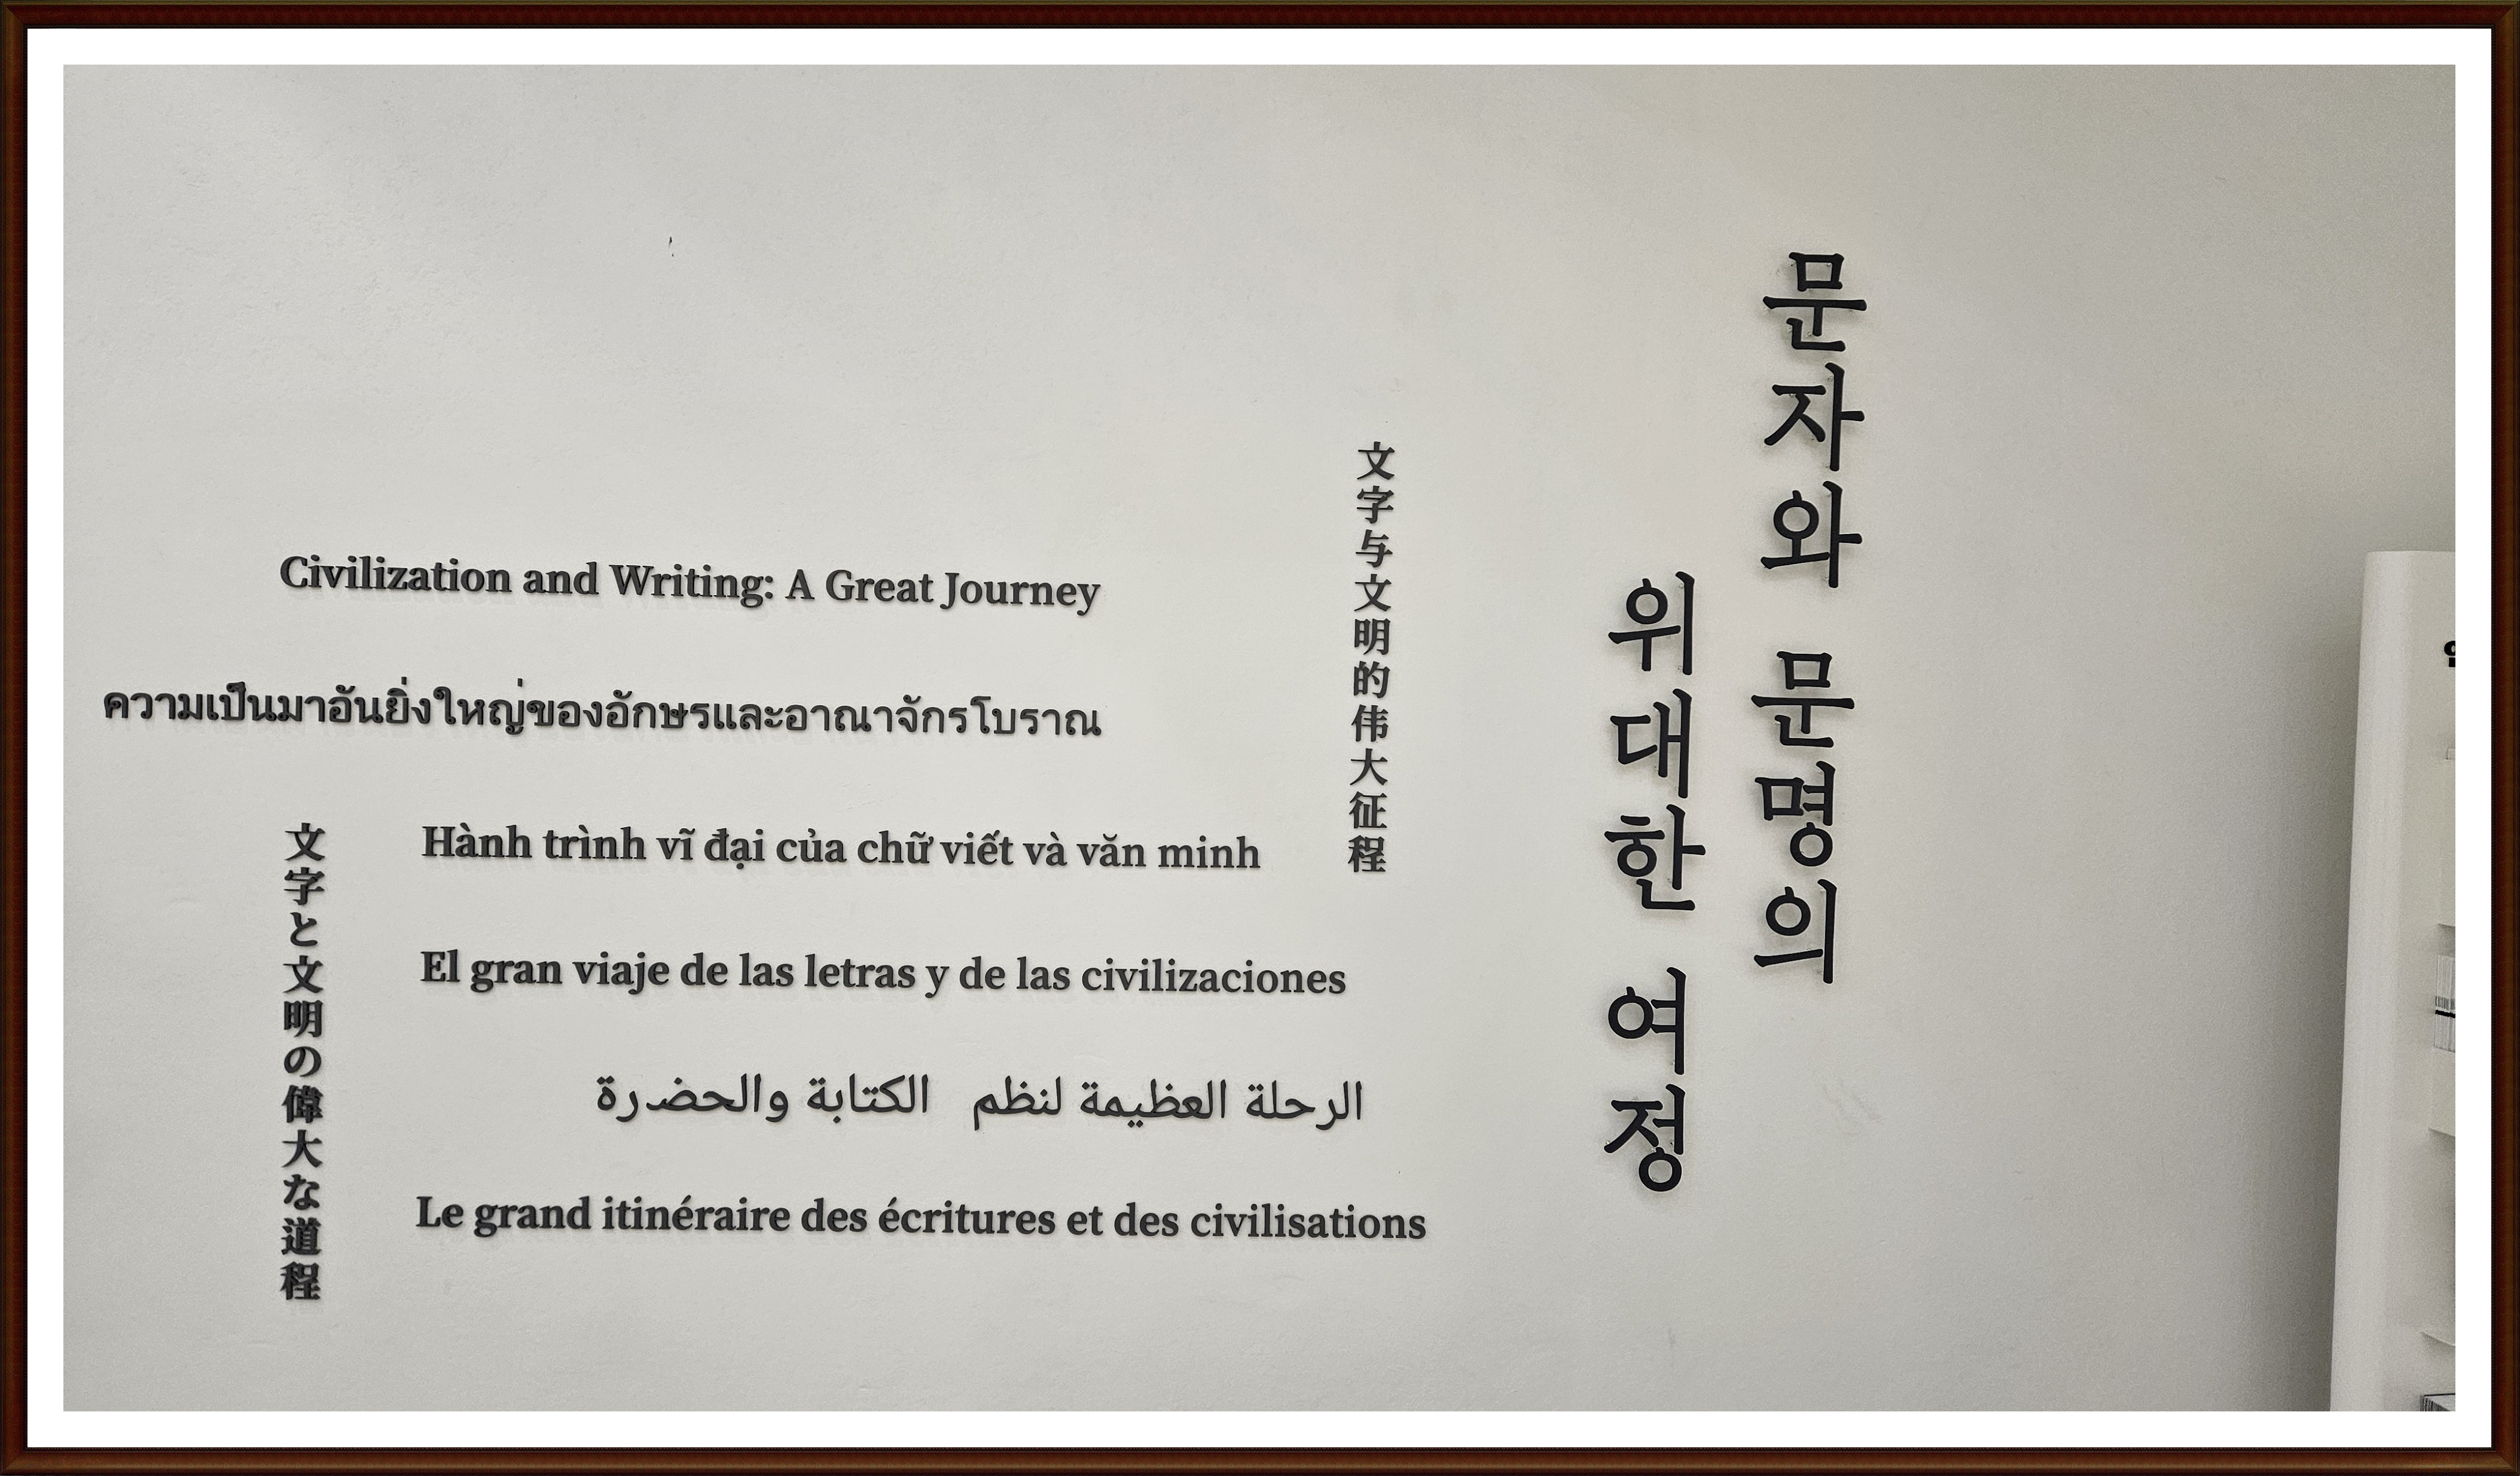 문자와 문명의
위대한 여정
文字与文明的伟大征程
Civilization and Writing: A Great Journey
ความเป็นมาอันยิ่งใหญ่ของอักษรและอาณาจักรโบราณ
Hành trình vĩ đại của chữ viết và văn minh
El gran viaje de las letras y de las civilizaciones
الرحلة العظيمة لنظم الكتابة والحضرة
Le grand itinéraire des écritures et des civilisations
文字と文明の偉大な道程